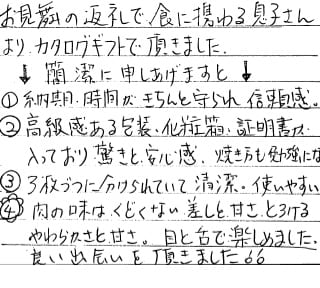 お見舞の返礼で食に携わる息子さん
よりカタログギフトで頂きました.
↓ 簡潔に申しあげますと ↓
① 納期.時間がきちんと守られ 信頼感。
② 高級感ある包装.化粧箱.証明書が
入っており驚きと安心感、焼き方も勉強にな
③ 3枚づつに分けられていて清潔。使いやすい
④ 肉の味はくどくない差しと甘さ.とろける
やわらかさと甘さ。目と舌で楽しめました.
良い出会いを頂きました